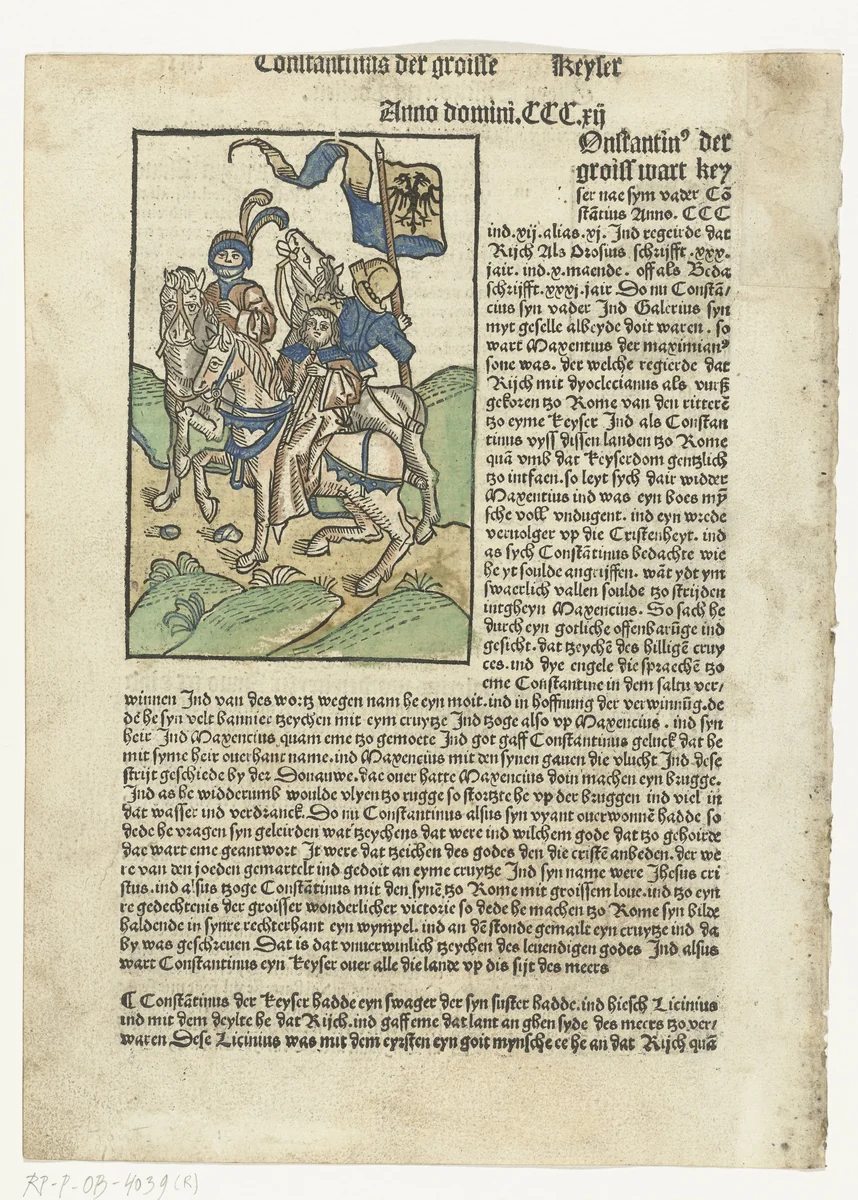 Constantinus der groisse Keyser
Anno domini.CCC.xij
Onstantin⁹ der
groiss wart key
ser nae sym vader Cõ
stãtius Anno. CCC
ind.xij.alias.xj. Ind regeirde dat
Rijch Als Orosius schrijfft .xxx.
jair. ind.x.maende. off als Beda
schrijfft.xxxj.jair. Do nu Constã/
cius syn vader Ind Galerius syn
myt geselle albeyde doit waren. so
wart Maxentius der maximian⁹
sone was. der welche regierde dat
Rijch mit dyoclecianus als vurß
gekoren tzo Rome van den ritterẽ
tzo eyme keyser Ind als Constan
tinus vyss dissen landen tzo Rome
quã vmb dat keyserdom gentzlich
tzo intfaen. so leyt sych dair widder
Maxentius ind was eyn boes mỹ
sche voll vndugent. ind eyn wrede
veruolger vp die Cristenheyt. ind
as sych Constãtinus bedachte wie
he yt soulde angrijffen. wãt ydt ym
swaerlich vallen soulde tzo strijden
intgheyn Maxencius. So sach he
durch eyn gotliche offenbarũge ind
gesicht. dat tzeychẽ des hilligẽ cruy
ces. ind dye engele die spraechẽ tzo
eme Constantine in dem saltu ver/
winnen Ind van des wortz wegen nam he eyn moit. ind in hoffnung der verwinnũg. de
dé he syn velt bannier tzeychen mit eym cruytze Ind tzoge also vp Maxencius. ind syn
heir Ind Maxencius quam eme tzo gemoete Ind got gaff Constantinus geluck dat he
mit syme heir ouerhant name. ind Maxencius mit den synen gauen die vlucht Ind dese
strijt geschiede by der Donauwe. dae ouer hatte Maxencius doin machen eyn brugge.
Ind as he widderumb woulde vlyen tzo rugge so stortzte he vp der bruggen ind viel in
dat wasser ind verdranck. Do nu Constantinus alsus syn vyant ouerwonnẽ hadde so
dede he vragen syn geleirden wat tzeychens dat were ind wilchem gode dat tzo gehoirde
dae wart eme geantwort It were dat tzeichen des godes den die cristẽ anbeden. der we
re van den joeden gemartelt ind gedoit an eyme cruytze Ind syn name were Jhesus cri
stus. ind alsus tzoge Constãtinus mit den synẽ tzo Rome mit groissem loue. ind tzo eyn
re gedechtenis der groisser wonderlicher victorie so dede he machen tzo Rome syn bilde
haldende in synre rechterhant eyn wympel. ind an dẽ stonde gemailt eyn cruytze ind da
by was geschreuen Dat is dat vnuerwinlich tzeychen des leuendigen godes Ind alsus
wart Constantinus eyn keyser ouer alle die lande vp dis sijt des meers
¶ Constãtinus der keyser hadde eyn swager der syn suster hadde. ind hiesch Licinius
ind mit dem deylte he dat Rijch. ind gaff eme dat lant an ghen syde des meers tzo ver/
waren Dese Licinius was mit dem eyrsten eyn goit mynsche ee he an dat Rijch quã
RP-P-OB-4039(R)